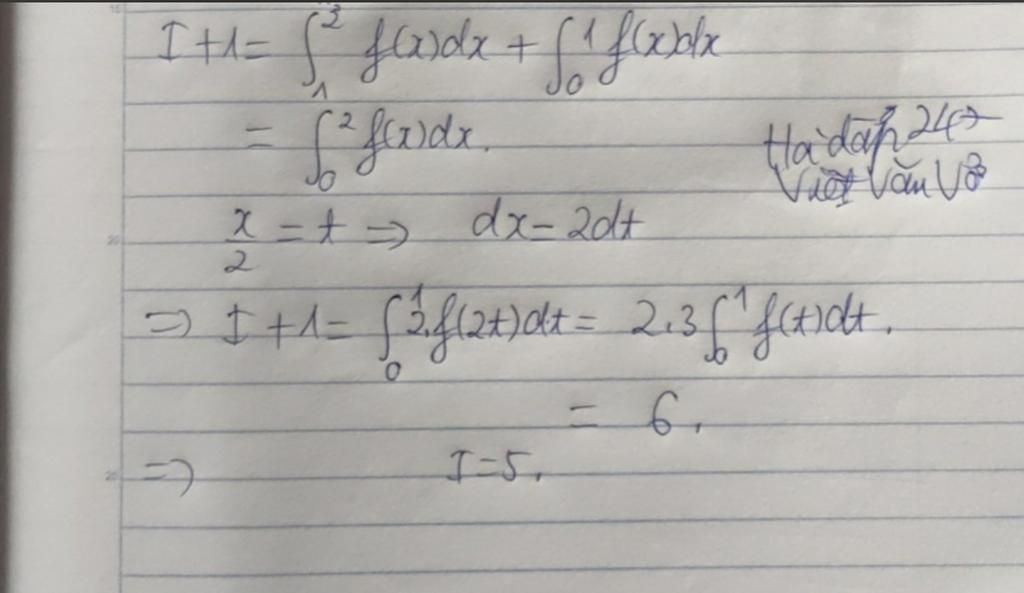 I + 1 = ∫₁² f(x)dx + ∫₀¹ f(x)dx
= ∫₀² f(x)dx.
Hỏi đáp 247
Việt Văn Võ
x/2 = t ⇒ dx = 2dt
⇒ I + 1 = ∫₀¹ 2.f(2t)dt = 2.3∫₀¹ f(t)dt.
= 6.
⇒ I = 5.